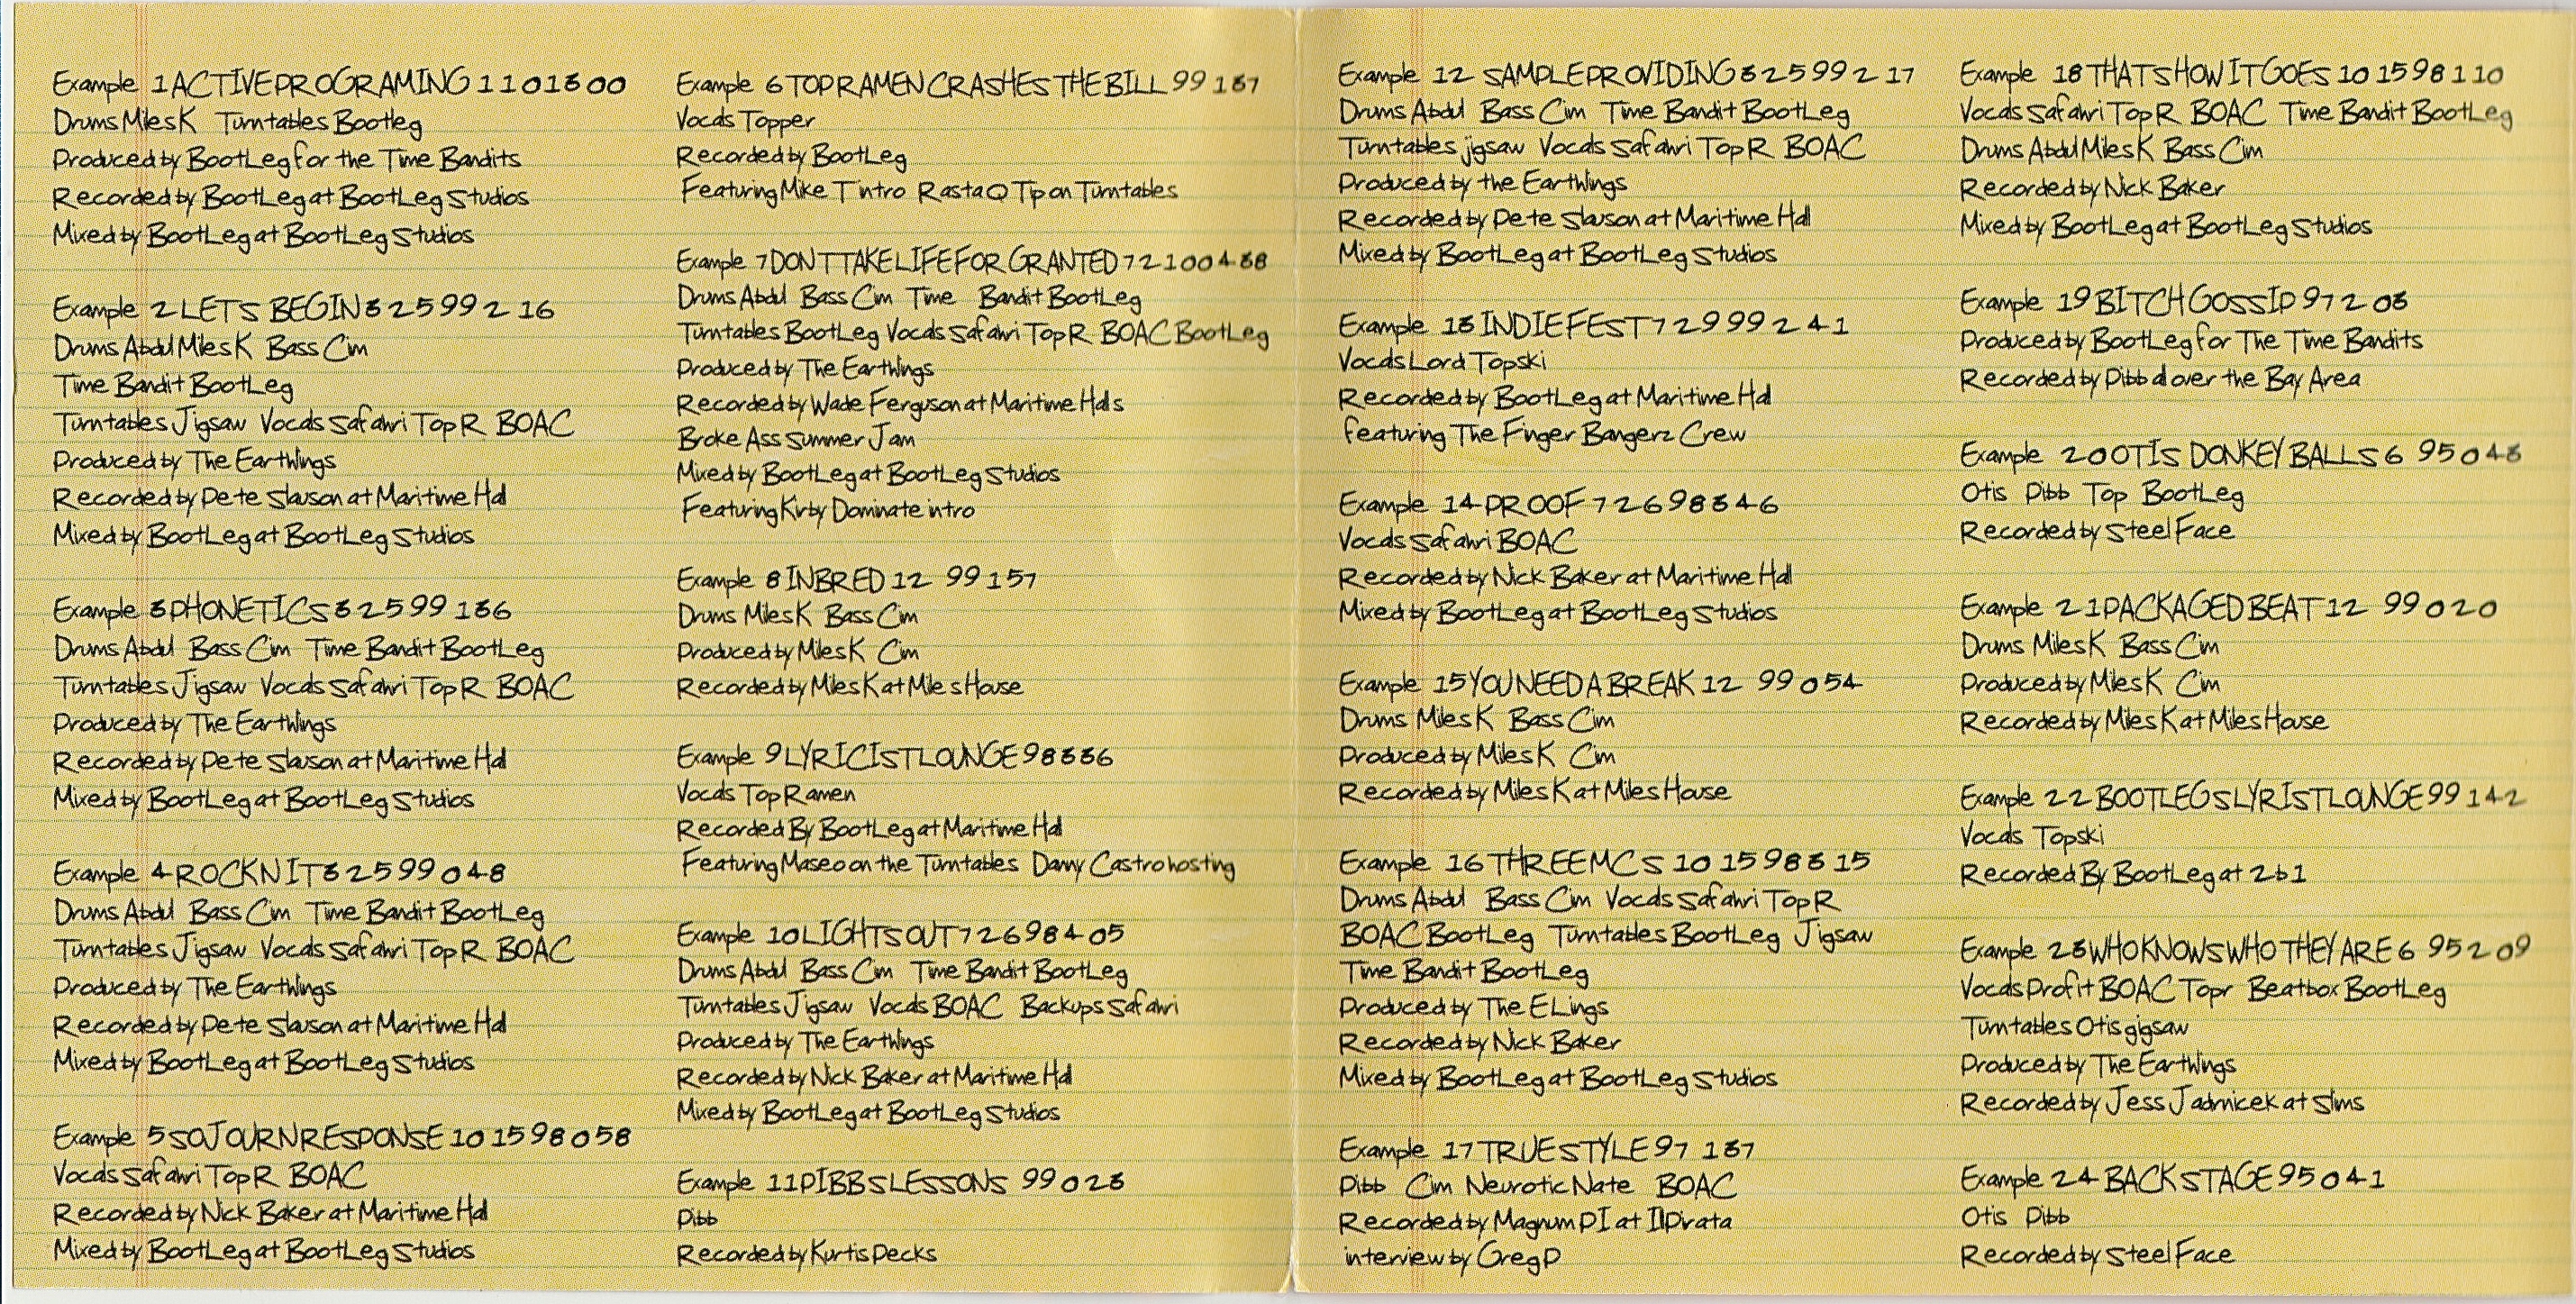 Example 1 ACTIVEPROGRAMING 1 10 13 00
Drums Miles K Turntables Bootleg
Produced by BootLeg for the Time Bandits
Recorded by BootLeg at BootLeg Studios
Mixed by BootLeg at BootLeg Studios
Example 2 LETS BEGIN 3 25 99 2 16
Drums Abdul Miles K Bass Cim
Time Bandit BootLeg
Turntables Jigsaw Vocals Safahri Top R BOAC
Produced by The Earthlings
Recorded by Pete Slauson at Maritime Hall
Mixed by BootLeg at BootLeg Studios
Example 3 PHONETICS 3 25 99 1 36
Drums Abdul Bass Cim Time Bandit BootLeg
Turntables Jigsaw Vocals Safahri Top R BOAC
Produced by The Earthlings
Recorded by Pete Slauson at Maritime Hall
Mixed by BootLeg at BootLeg Studios
Example 4 ROCKN IT 3 25 99 0 48
Drums Abdul Bass Cim Time Bandit BootLeg
Turntables Jigsaw Vocals Safahri Top R BOAC
Produced by The Earthlings
Recorded by Pete Slauson at Maritime Hall
Mixed by BootLeg at BootLeg Studios
Example 5 SOJOURN RESPONSE 10 15 98 0 58
Vocals Safahri Top R BOAC
Recorded by Nick Baker at Maritime Hall
Mixed by BootLeg at BootLeg Studios
Example 6 TOP RAMEN CRASHES THE BILL 99 1 37
Vocals Topper
Recorded by BootLeg
Featuring Mike T intro Rasta Q Tip on Turntables
Example 7 DONT TAKE LIFE FOR GRANTED 7 2 100 4 38
Drums Abdul Bass Cim Time Bandit BootLeg
Turntables BootLeg Vocals Safahri Top R BOAC BootLeg
Produced by The Earthlings
Recorded by Wade Ferguson at Maritime Halls
Broke Ass Summer Jam
Mixed by BootLeg at BootLeg Studios
Featuring Kirby Dominate intro
Example 8 INBRED 12 99 1 57
Drums Miles K Bass Cim
Produced by Miles K Cim
Recorded by Miles K at Miles House
Example 9 LYRICIST LOUNGE 98 3 36
Vocals Top Ramen
Recorded By BootLeg at Maritime Hall
Featuring Maseo on the Turntables Danny Castro hosting
Example 10 LIGHTS OUT 7 26 98 4 05
Drums Abdul Bass Cim Time Bandit BootLeg
Turntables Jigsaw Vocals BOAC Backups Safahri
Produced by The Earthlings
Recorded by Nick Baker at Maritime Hall
Mixed by BootLeg at BootLeg Studios
Example 11 PIBBS LESSONS 99 0 23
Pibb
Recorded by Kurtis Pecks
Example 12 SAMPLE PROVIDING 3 25 99 2 17
Drums Abdul Bass Cim Time Bandit BootLeg
Turntables jigsaw Vocals Safahri Top R BOAC
Produced by the Earthlings
Recorded by Pete Slauson at Maritime Hall
Mixed by BootLeg at BootLeg Studios
Example 13 INDIE FEST 7 29 99 2 41
Vocals Lord Topski
Recorded by BootLeg at Maritime Hall
featuring The Finger Bangerz Crew
Example 14 PROOF 7 26 98 3 46
Vocals Safahri BOAC
Recorded by Nick Baker at Maritime Hall
Mixed by BootLeg at BootLeg Studios
Example 15 YOU NEED A BREAK 12 99 0 54
Drums Miles K Bass Cim
Produced by Miles K Cim
Recorded by Miles K at Miles House
Example 16 THREE MCS 10 15 98 3 15
Drums Abdul Bass Cim Vocals Safahri Top R
BOAC BootLeg Turntables BootLeg Jigsaw
Time Bandit BootLeg
Produced by The ELings
Recorded by Nick Baker
Mixed by BootLeg at BootLeg Studios
Example 17 TRUE STYLE 97 1 37
Pibb Cim Neurotic Nate BOAC
Recorded by Magnum PI at IlPirata
interview by Greg P
Example 18 THATS HOW IT GOES 10 15 98 1 10
Vocals Safahri Top R BOAC Time Bandit BootLeg
Drums Abdul Miles K Bass Cim
Recorded by Nick Baker
Mixed by BootLeg at BootLeg Studios
Example 19 BITCH GOSSIP 97 2 03
Produced by BootLeg for The Time Bandits
Recorded by Pibb all over the Bay Area
Example 20 OTIS DONKEY BALLS 6 95 0 43
Otis Pibb Top BootLeg
Recorded by Steel Face
Example 21 PACKAGED BEAT 12 99 0 20
Drums Miles K Bass Cim
Produced by Miles K Cim
Recorded by Miles K at Miles House
Example 22 BOOTLEGS LYRIST LOUNGE 99 1 42
Vocals Topski
Recorded By BootLeg at 2b1
Example 23 WHO KNOWS WHO THEY ARE 6 95 2 09
Vocals Profit BOAC Topr Beatbox BootLeg
Turntables Otis gigsaw
Produced by The Earthlings
Recorded by Jess Jadrnicek at Slims
Example 24 BACK STAGE 95 0 41
Otis Pibb
Recorded by Steel Face